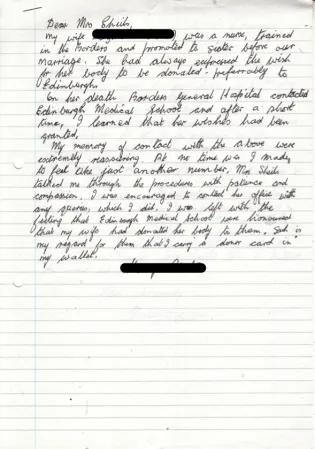 Dear Mrs Sheils,
My wife was a nurse, trained
in the Borders and promoted to sister before our
marriage. She had always expressed the wish
for her body to be donated - preferably to
Edinburgh.
On her death Borders General Hospital contacted
Edinburgh Medical School and after a short
time, I learned that her wishes had been
granted.
My memory of contact with the above were
extremely reassuring. At no time was I made
to feel like just another number. Mrs Sheils
talked me through the procedures with patience and
compassion. I was encouraged to contact her office with
any queries, which I did. I was left with the
feeling that Edinburgh Medical School were honoured
that my wife had donated her body to them. Such is
my regard for them that I carry a donor card in
my wallet.